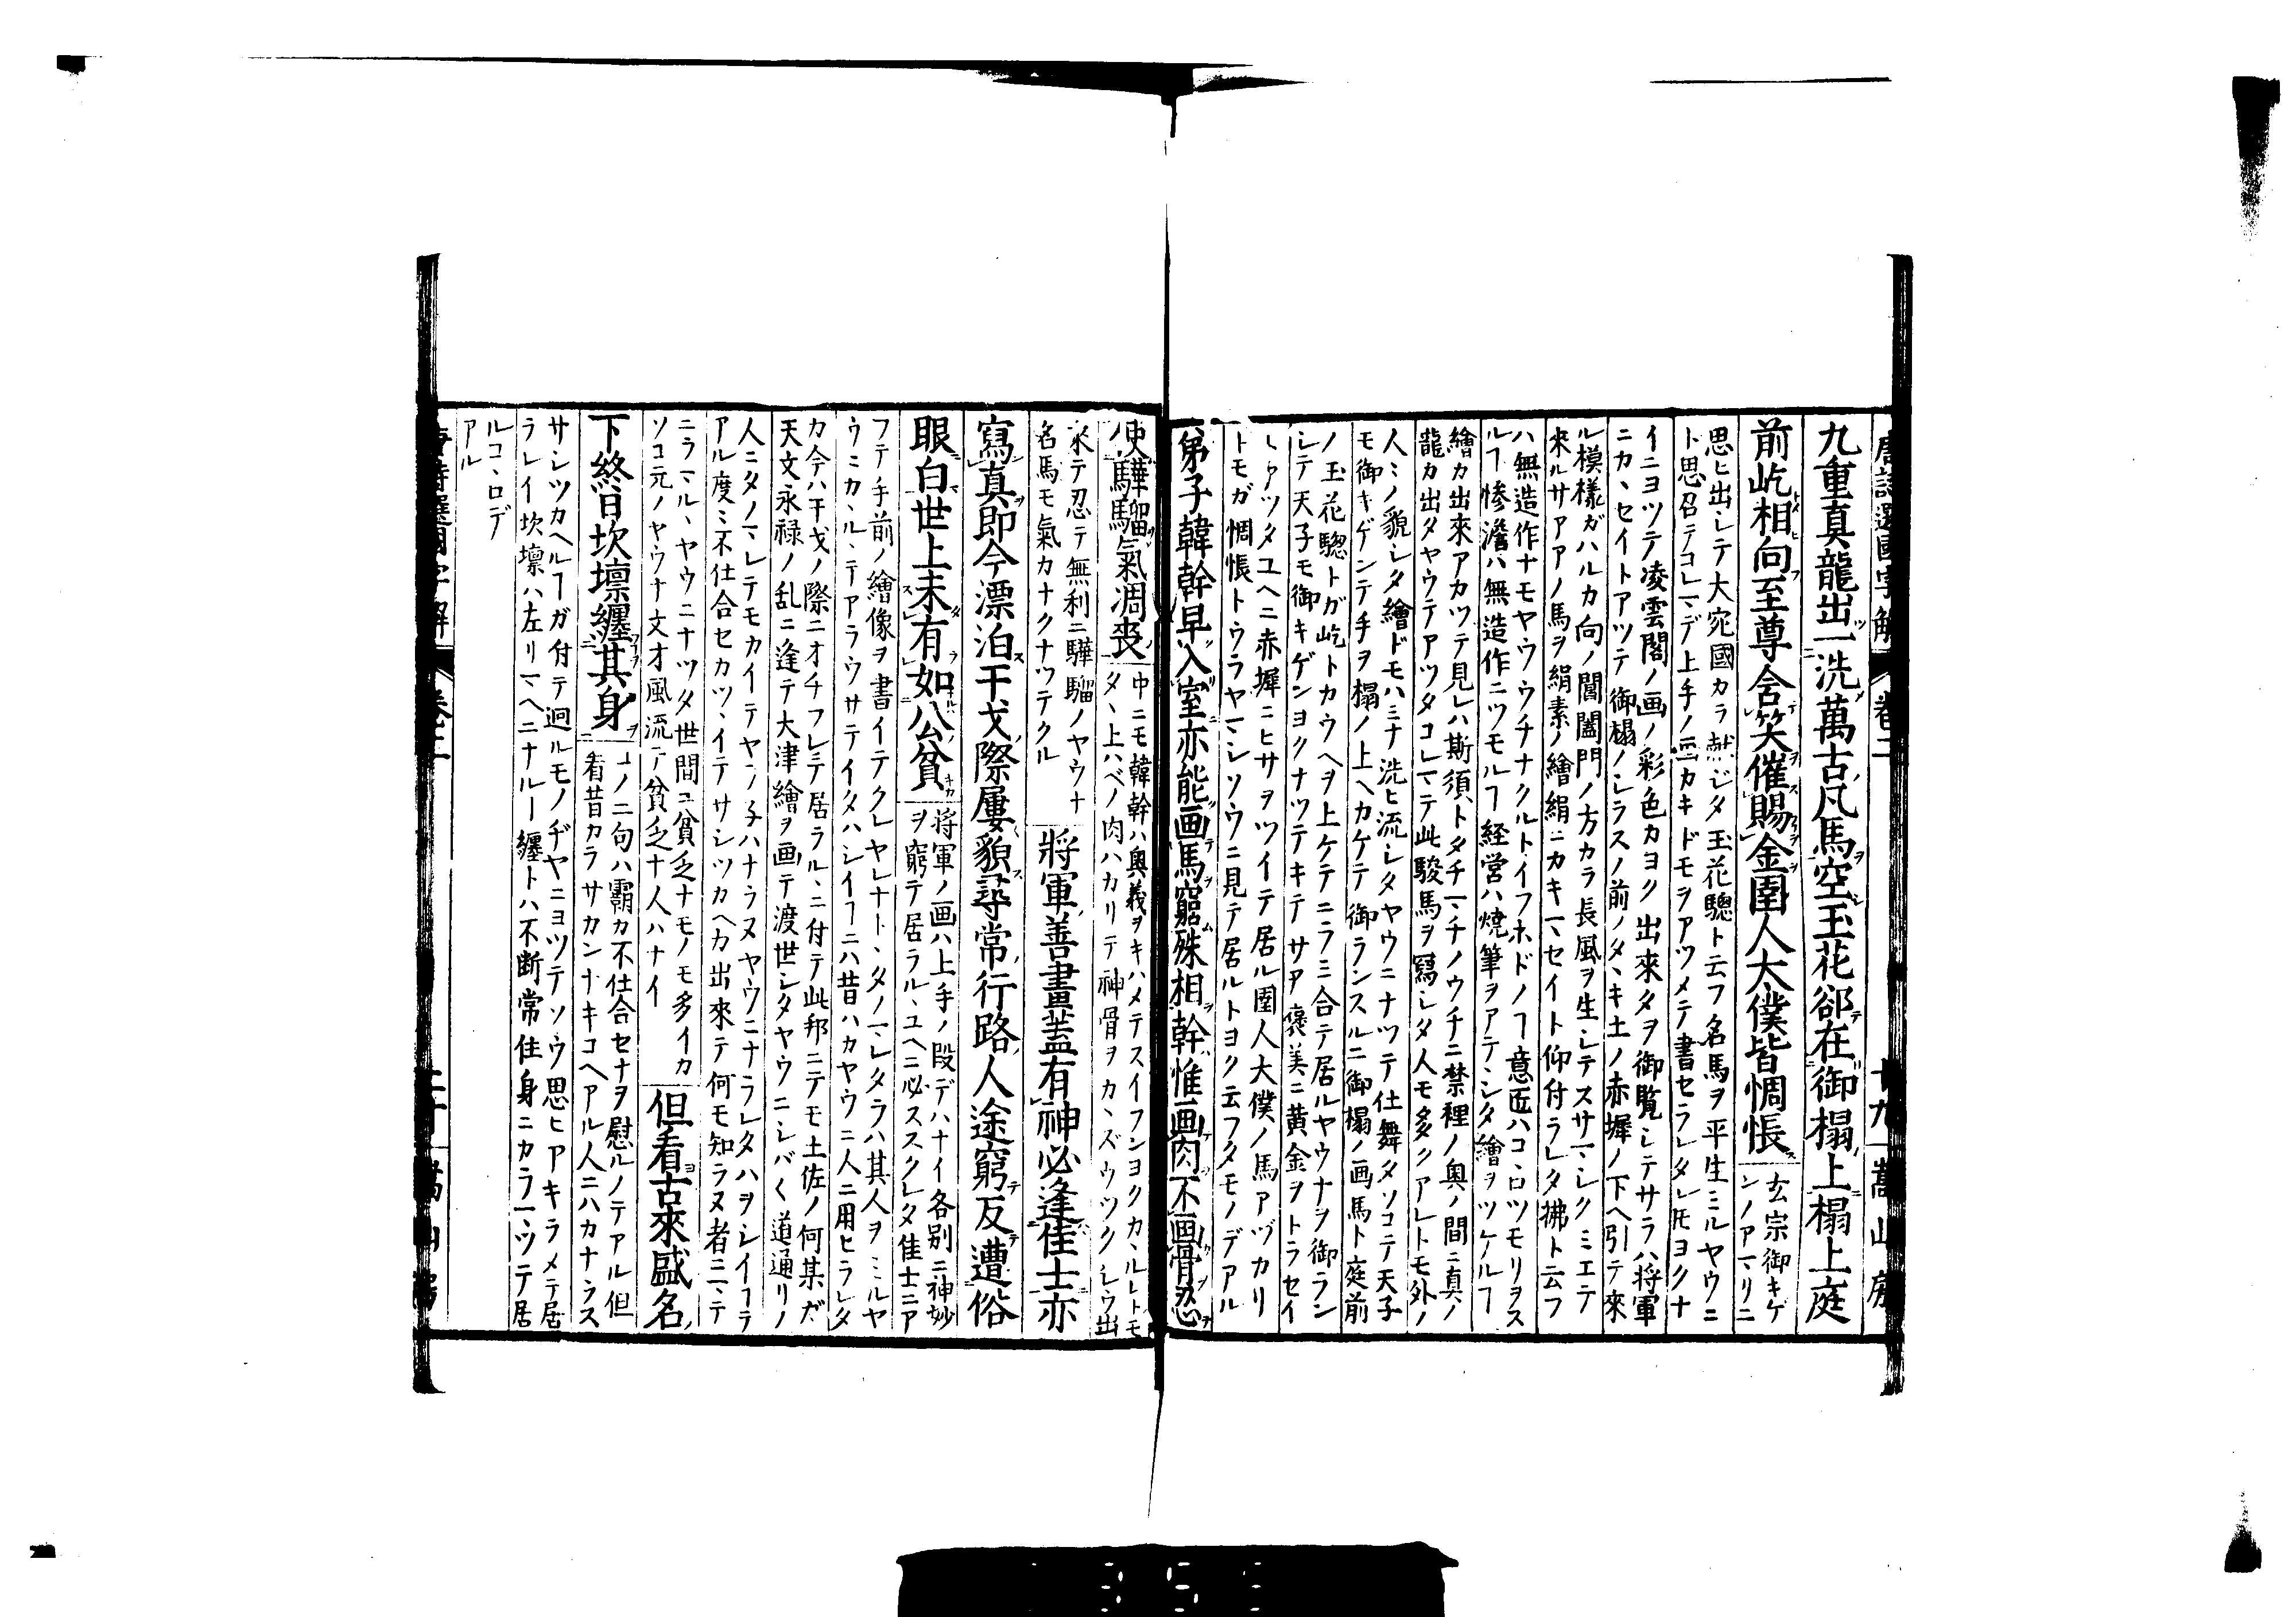 唐詩選國字解 卷二 十九 嵩山房
九重真龍出一洗萬古凡馬空玉花郤在御榻上榻上庭
前屹相向至尊含笑催賜金圉人太僕皆惆悵
玄宗御キゲンノアマリニ
思ヒ出シテ大宛國カラ献ジタ玉花驄ト云フ名馬ヲ平生ミルヤウニ
ト思召テコレマデ上手ノ画カキドモヲアツメテ書セラレタレ𪜈ヨクナ
イニヨツテ凌雲閣ノ画ノ彩色カヨク出來タヲ御覧シテサラハ将軍
ニカヽセイトアツテ御榻ノシラスノ前ノタヽキ土ノ赤墀ノ下ヘ引テ來
ル模様ガハルカ向ノ閶闔門ノ方カラ長風ヲ生シテスサマシクミエテ
來ルサアアノ馬ヲ絹素ノ繪絹ニカキマセイト仰付ラレタ拂ト云フ
ハ無造作ナモヤウウチナクルトイフホドノヿ意匠ハコヽロツモリヲス
ルヿ惨澹ハ無造作ニツモルヿ経営ハ焼筆ヲアテシタ繪ヲツケルヿ
繪カ出來アカツテ見レハ斯須トタチマチノウチニ禁裡ノ奥ノ間ニ真ノ
龍カ出タヤウテアツタコレマテ此駿馬ヲ寫シタ人モ多クアレトモ外ノ
人ミノ貌シタ繪ドモハミナ洗ヒ流シタヤウニナツテ仕舞タソコテ天子
モ御キゲンテ手ヲ榻ノ上ヘカケテ御ランスルニ御榻ノ画馬ト庭前
ノ玉花驄トガ屹トカウヘヲ上ケテニフミ合テ居ルヤウナヲ御ラン
シテ天子モ御キゲンヨクナツテキテサア褒美ニ黄金ヲトラセイ
トアツタユヘニ赤墀ニヒサヲツイテ居ル圉人大僕ノ馬アヅカリ
トモガ惆悵トウラヤマシソウニ見テ居ルトヨク云フタモノデアル
弟子韓幹早入室亦能画馬窮殊相幹惟画肉不画骨忍
使驊騮氣凋喪
中ニモ韓幹ハ奥義ヲキハメテスイフンヨクカヽルレトモ
タヽ上ハベノ肉ハカリテ神骨ヲカヽズウツクシウ出
来テ忍テ無利ニ驊騮ノヤウナ
名馬モ氣カナクナツテクル
將軍善畫蓋有神必逢佳士亦
寫真即今漂泊干戈際屢貌尋常行路人途窮反遭俗
眼白世上未有如公貧
将軍ノ画ハ上手ノ段デハナイ各別ニ神妙
ヲ窮テ居ラルヽユヘニ必ススクレタ佳士ニア
フテ手前ノ繪像ヲ書イテクレヤレナトヽタノマレタラハ其人ヲミルヤ
ウニカヽルヽテアラウサテイタハシイヿニハ昔ハカヤウニ人ニ用ヒラレタ
カ今ハ干戈ノ際ニオチフレテ居ラルヽニ付テ此邦ニテモ土佐ノ何某ガ
天文永禄ノ乱ニ逢テ大津繪ヲ画テ渡世シタヤウニシバ〱道通リノ
人ニタノマレテモカイテヤンチハナラヌヤウニナラレタハヲシイヿラ
アル度ミ不仕合セカツヽイテサシツカヘカ出來テ何モ知ラヌ者ミヽテ
ニラマルヽヤウニナツタ世間ニ貧乏ナモノモ多イカ
ソコ元ノヤウナ文才風流テ貧乏ナ人ハナイ
但看古來盛名
下終日坎壈纏其身
コノ二句ハ覇カ不仕合セナヲ慰ルノテアル但
看昔カラサカンナキコヘアル人ニハカナラス
サシツカヘルヿガ付テ廻ルモノヂヤニヨツテソウ思ヒアキラメテ居
ラレイ坎壈ハ左リマヘニナルー纏トハ不断常住身ニカラマツテ居
ルコヽロデ
アル
唐詩選國字解 卷二 二十 嵩山房